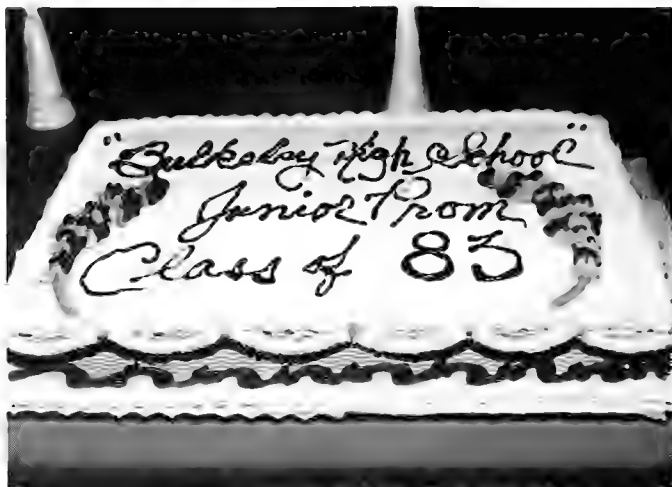 "Bulkeley High School"
Junior Prom
Class of 83